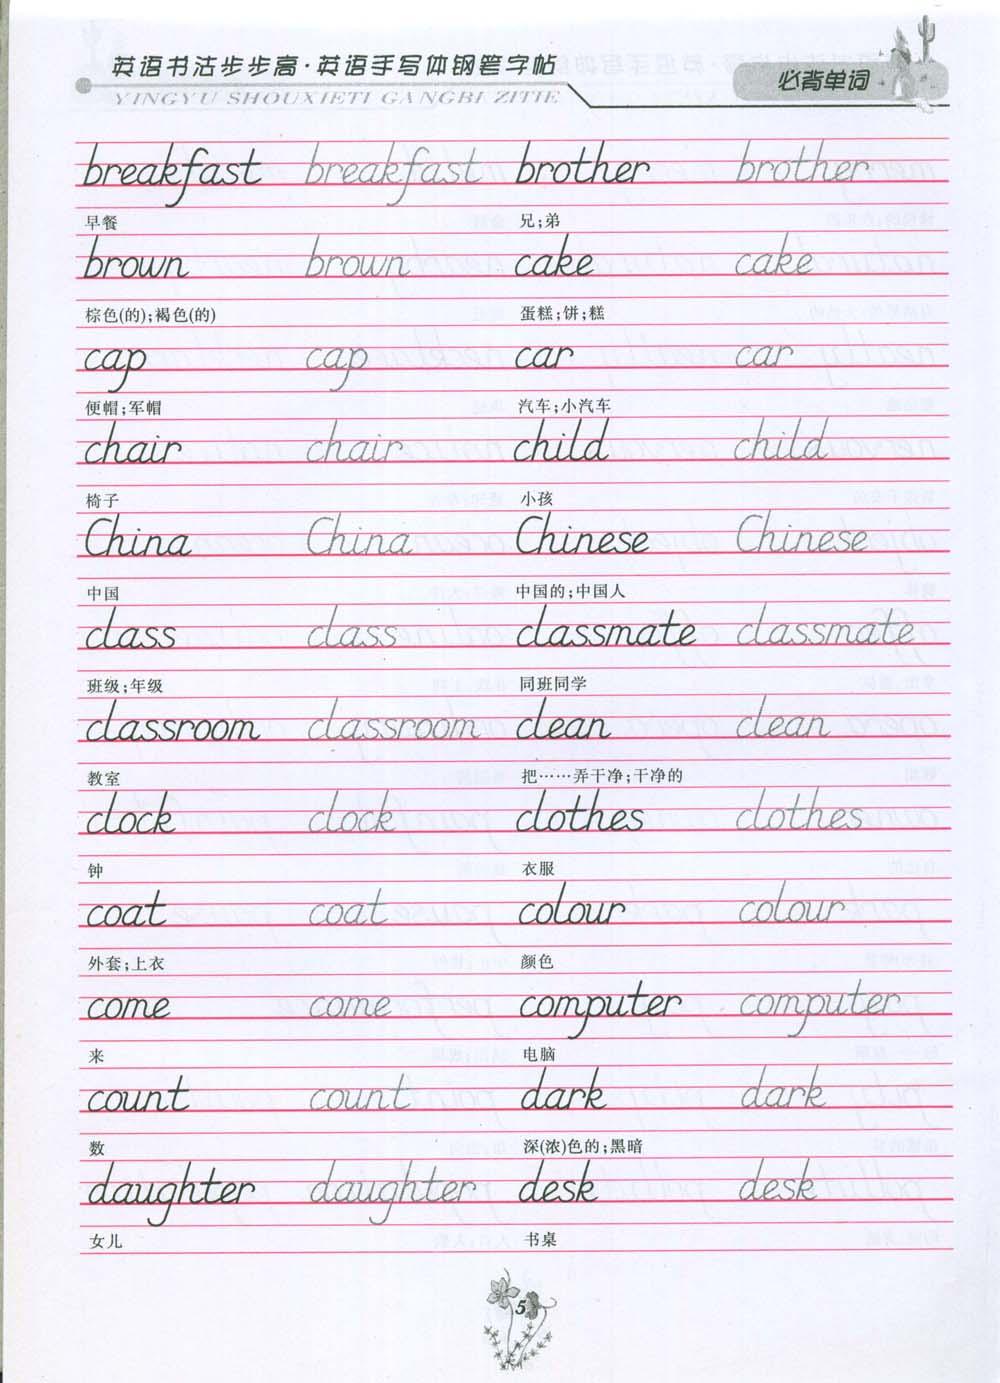 英语书法步步高·英语手写体钢笔字帖
YINGYU SHOUXIETI GANGBI ZITIE
必背单词
breakfast breakfast brother brother
早餐 兄;弟
brown brown cake cake
棕色(的);褐色(的) 蛋糕;饼;糕
cap cap car car
便帽;军帽 汽车;小汽车
chair chair child child
椅子 小孩
China China Chinese Chinese
中国 中国的;中国人
class class classmate classmate
班级;年级 同班同学
classroom classroom clean clean
教室 把……弄干净;干净的
clock clock clothes clothes
钟 衣服
coat coat colour colour
外套;上衣 颜色
come come computer computer
来 电脑
count count dark dark
数 深(浓)色的;黑暗
daughter daughter desk desk
女儿 书桌
5